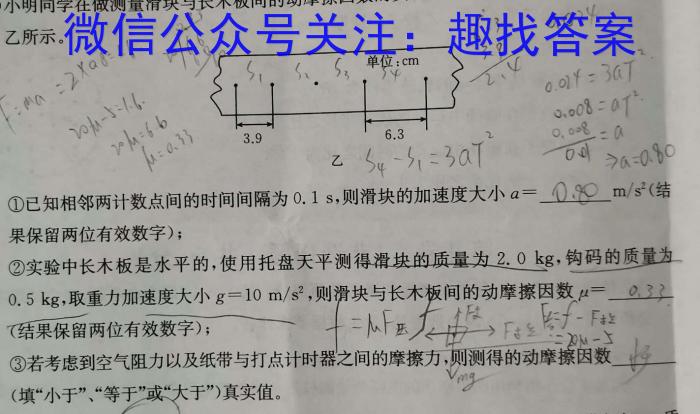 小明同学在做测量滑块与长木板间的动摩擦因数
乙所示。
微信公众号关注：趣找答案
单位:cm
S₁ S₂ S₃ S₄
3.9
6.3
乙
F=ma
20μ-5=1.6
20μ=6.6
μ=0.33
2.4
0.024=3aT²
0.008=aT²
0.008/0.01=a
⇒a=0.80
S₄-S₁=3aT²
①已知相邻两计数点间的时间间隔为0.1 s,则滑块的加速度大小a=0.80 m/s²(结
果保留两位有效数字);
②实验中长木板是水平的,使用托盘天平测得滑块的质量为2.0 kg,钩码的质量为
0.5 kg,取重力加速度大小g=10 m/s²,则滑块与长木板间的动摩擦因数μ=0.33
(结果保留两位有效数字);
f=μF压
f
=20μ-5
mg
③若考虑到空气阻力以及纸带与打点计时器之间的摩擦力,则测得的动摩擦因数
(填“小于”、“等于”或“大于”)真实值。